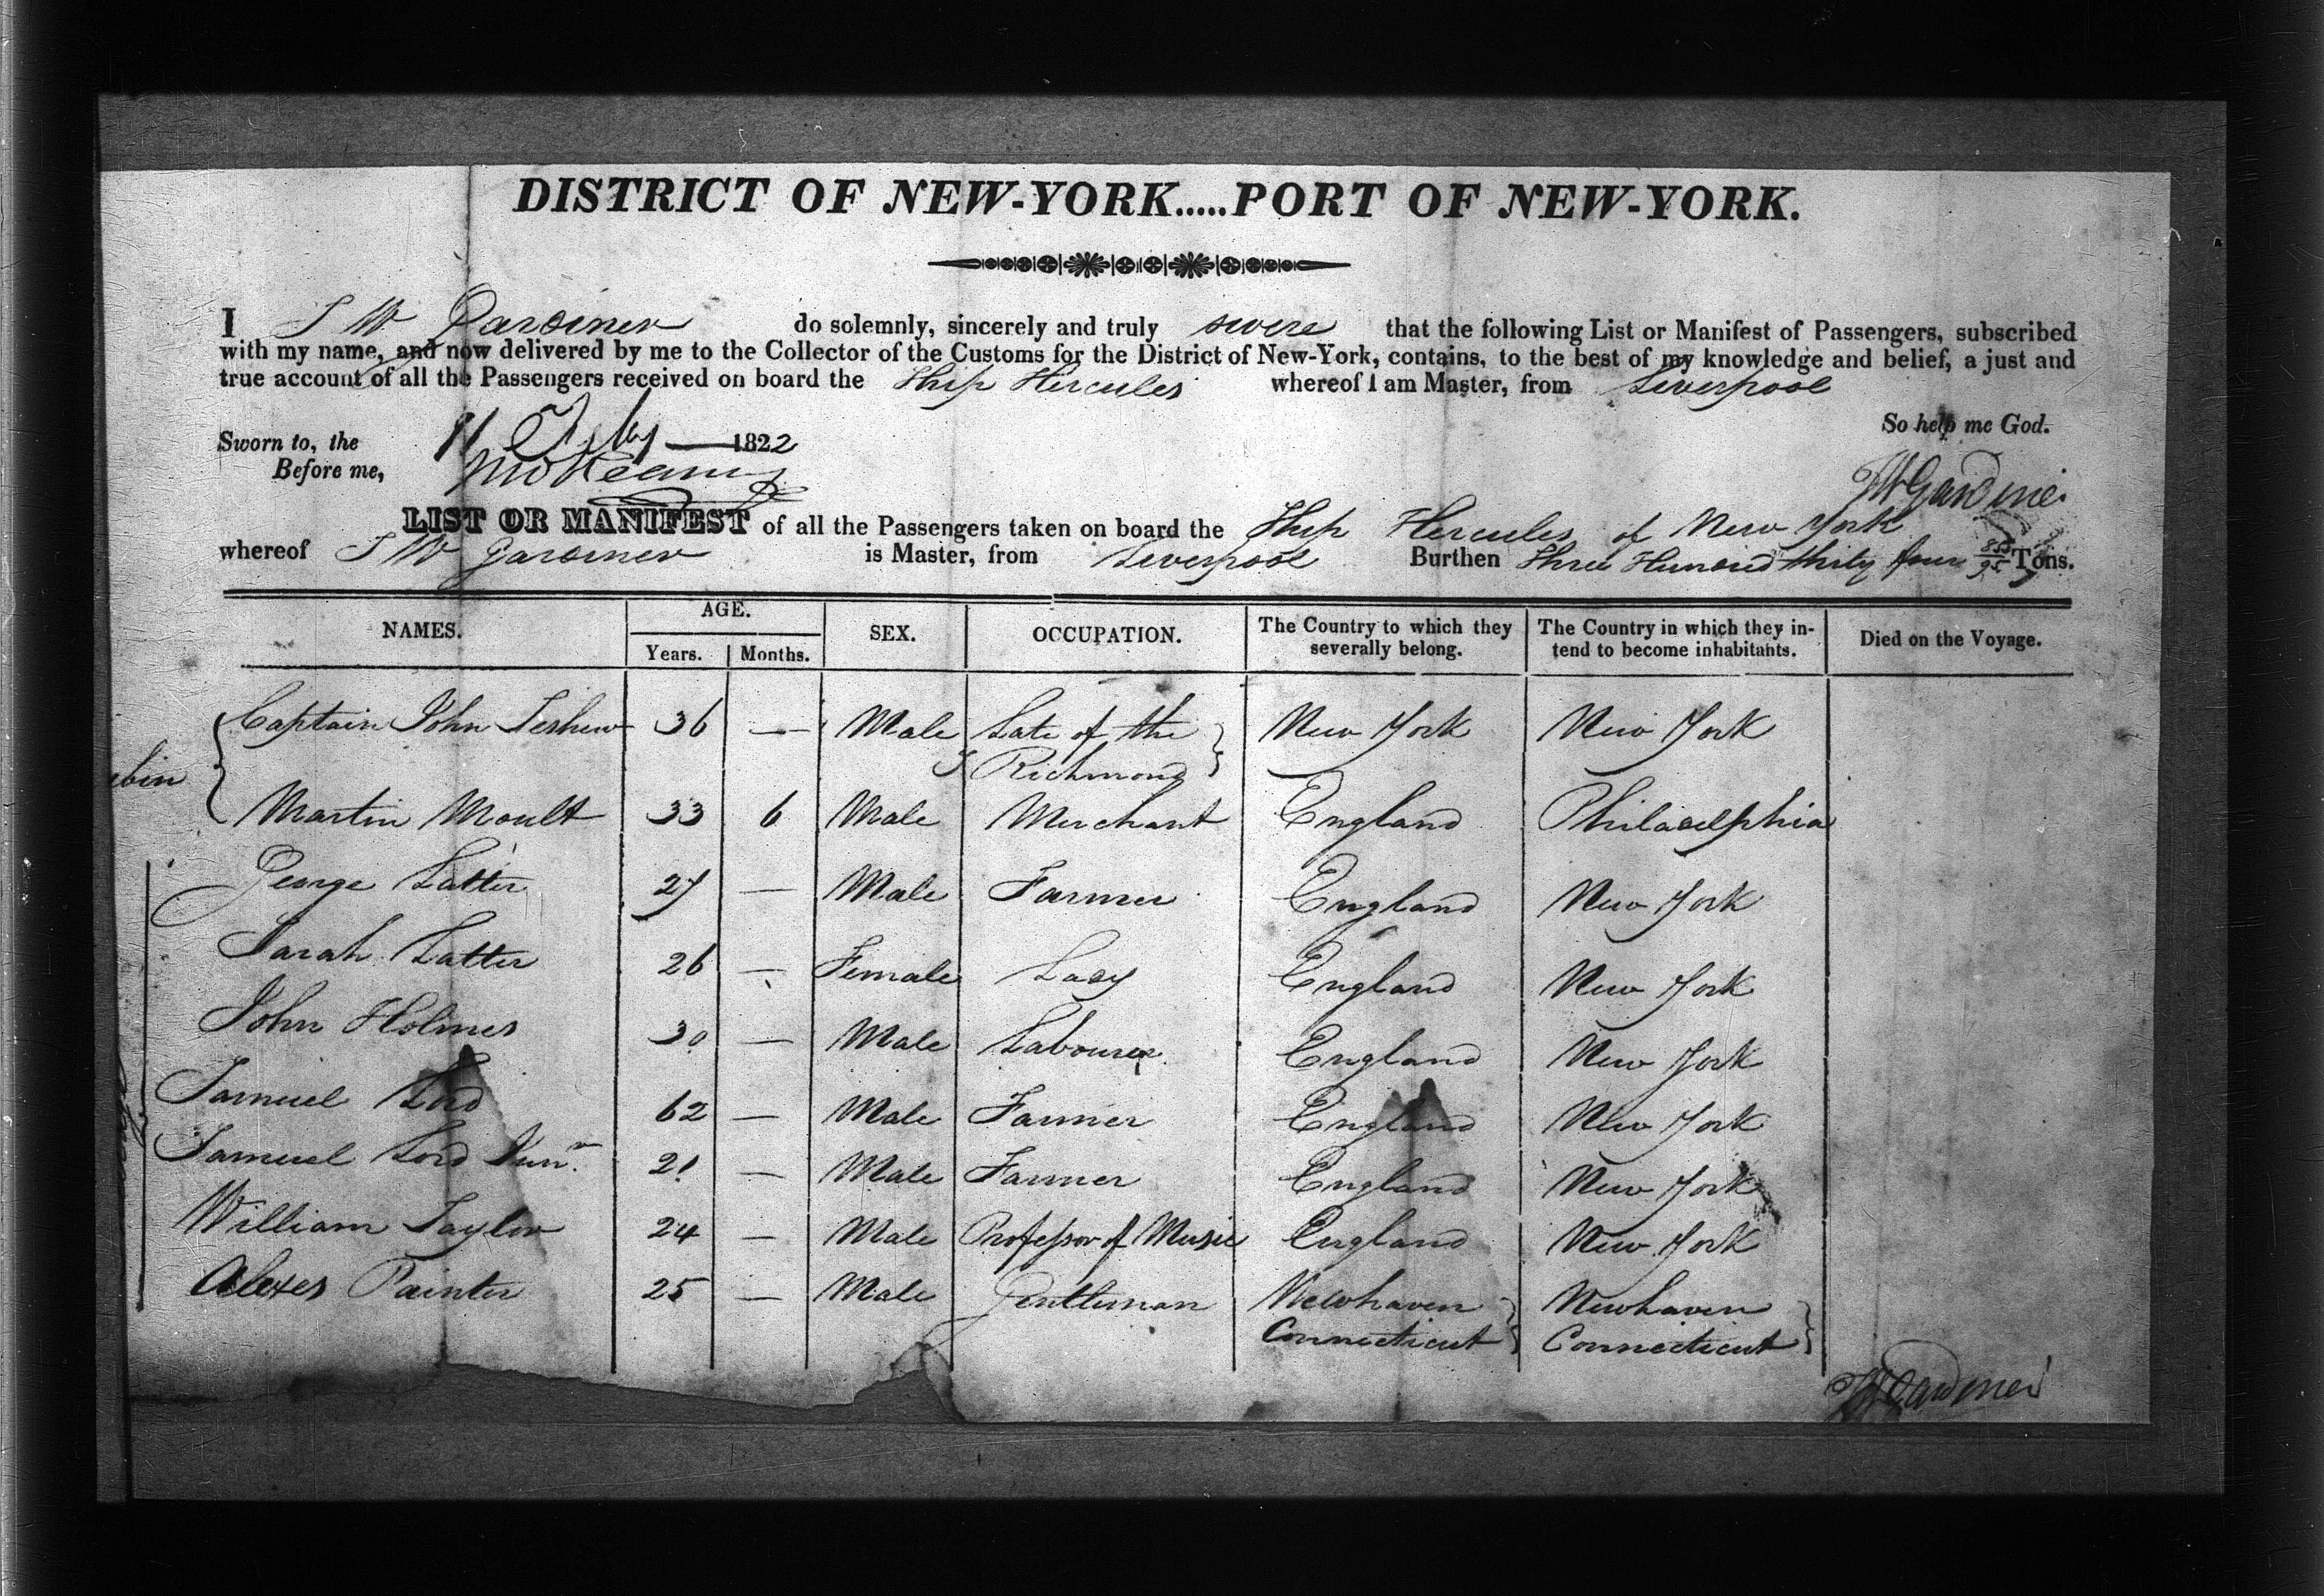 DISTRICT OF NEW-YORK.....PORT OF NEW-YORK.
I J W Gardiner do solemnly, sincerely and truly swere that the following List or Manifest of Passengers, subscribed
with my name, and now delivered by me to the Collector of the Customs for the District of New-York, contains, to the best of my knowledge and belief, a just and
true account of all the Passengers received on board the Ship Hercules whereof I am Master, from Liverpool
So help me God.
Sworn to, the 11 Feby 1822
Before me,
JWGardiner
LIST OR MANIFEST of all the Passengers taken on board the Ship Hercules of New York
whereof J W Gardiner is Master, from Liverpool Burthen Three Hundred thirty four 85/95 Tons.
NAMES. AGE. SEX. OCCUPATION. The Country to which they severally belong. The Country in which they intend to become inhabitants. Died on the Voyage.
Years. Months.
Captain John 36 — Male Late of the New York New York
Richmond
Martin Moult 33 6 Male Merchant England Philadelphia
George Latter 27 — Male Farmer England New York
Sarah Latter 26 — Female Lady England New York
John Holmes 30 — Male Labourer England New York
Samuel Lord 62 — Male Farmer England New York
Samuel Lord Junr. 21 — Male Farmer England New York
William Taylor 24 — Male Professor of Music England New York
Alexes Painter 25 — Male Gentleman Newhaven Newhaven
Connecticut Connecticut
JWGardiner